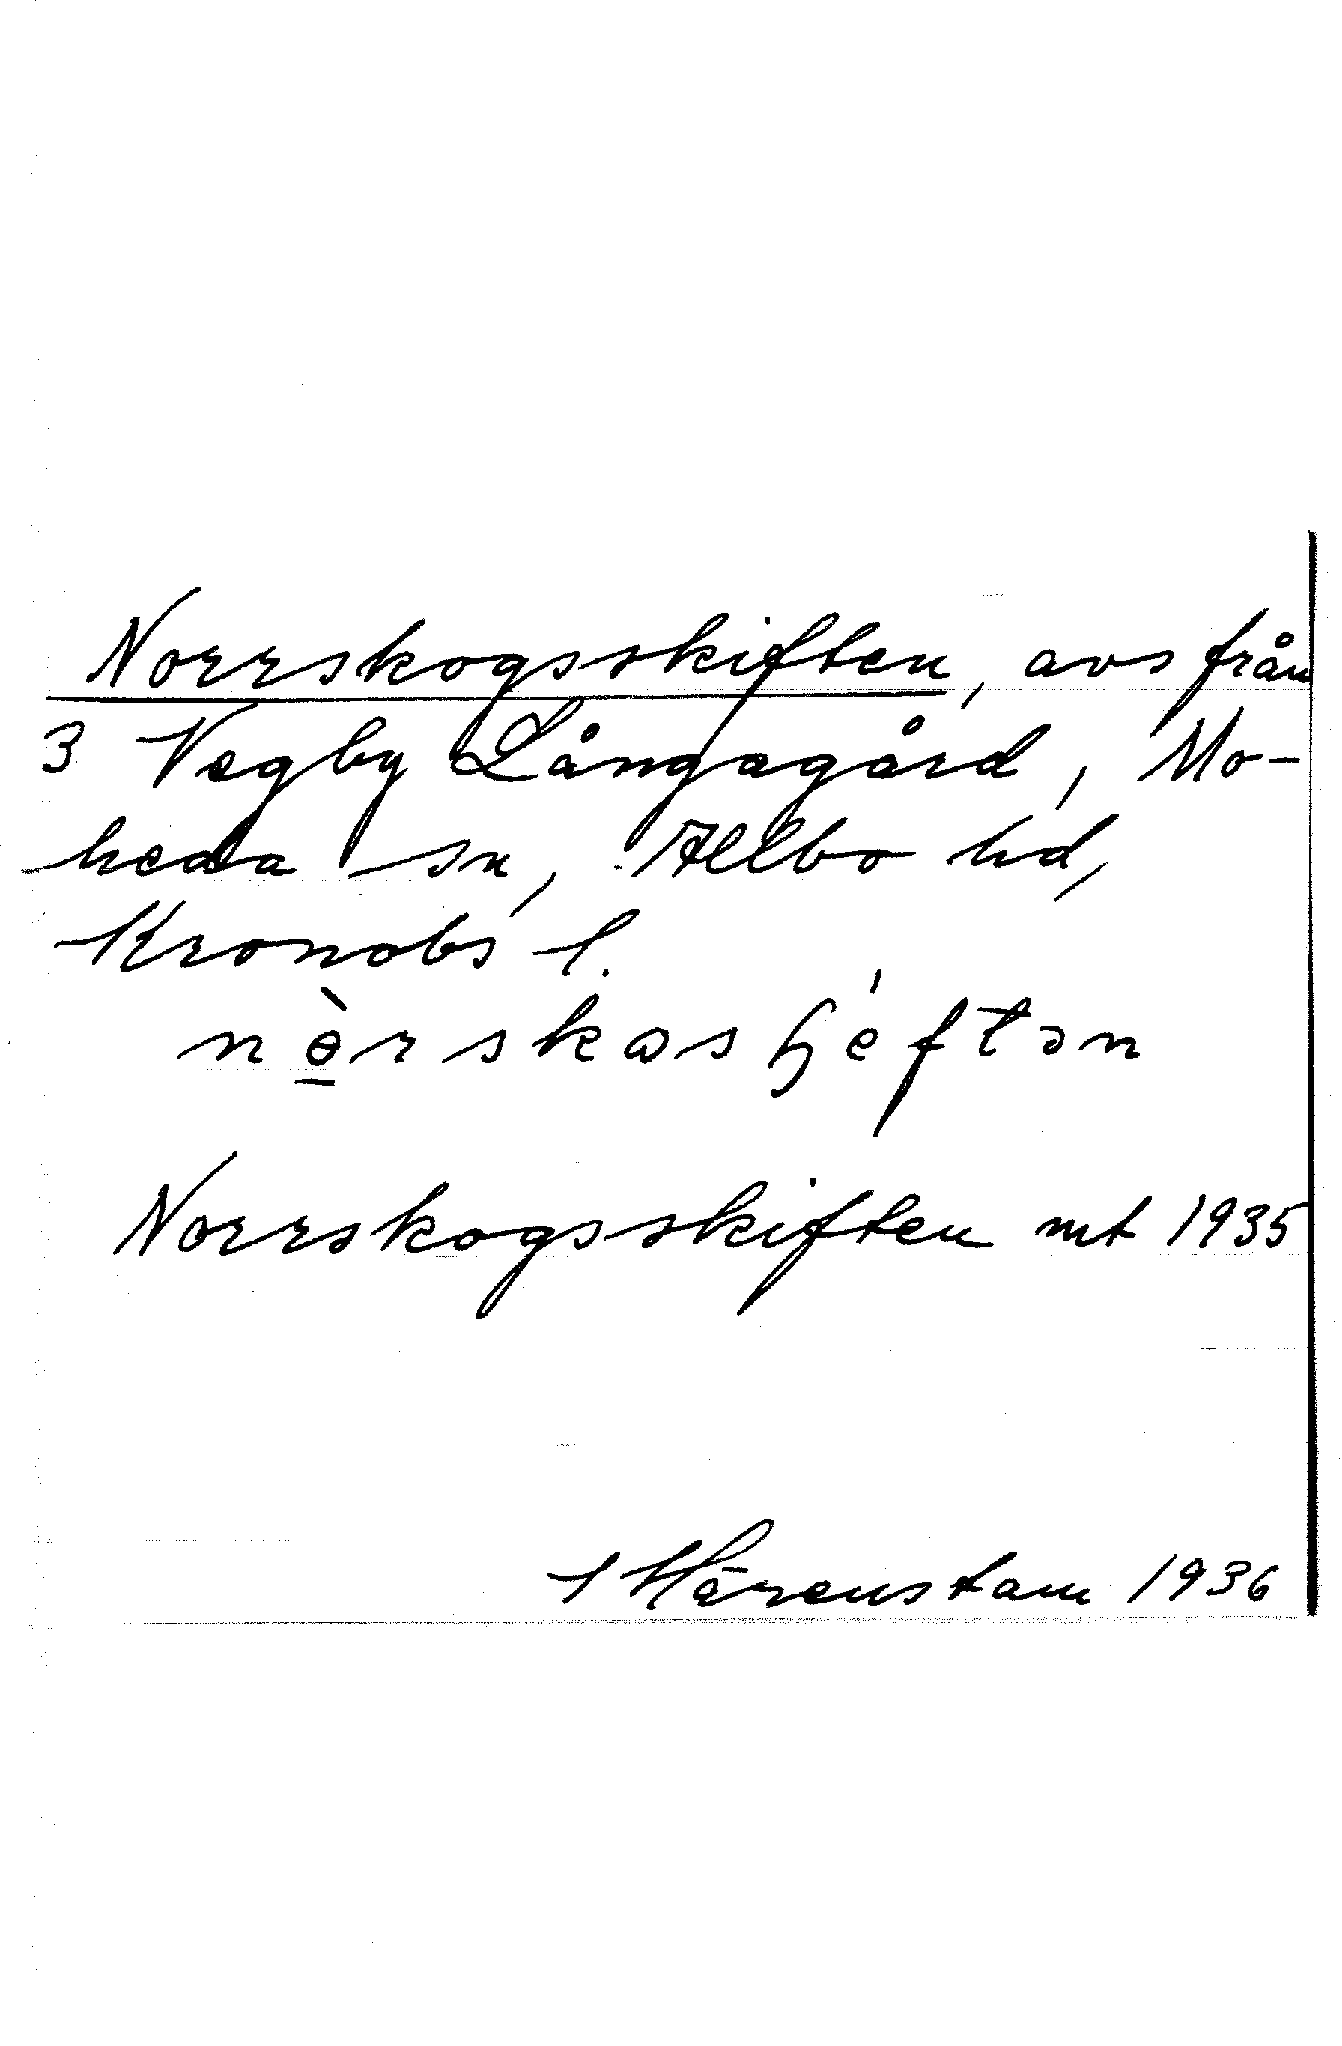 Norrskogsskiften, avs från
3 Vegby Långagård, Mo-
heda sn, Allbo hd,
Kronobs l.
nө̠̀rskɷsɧéftən
Norrskogsskiften mt 1935
I Härenstam 1936